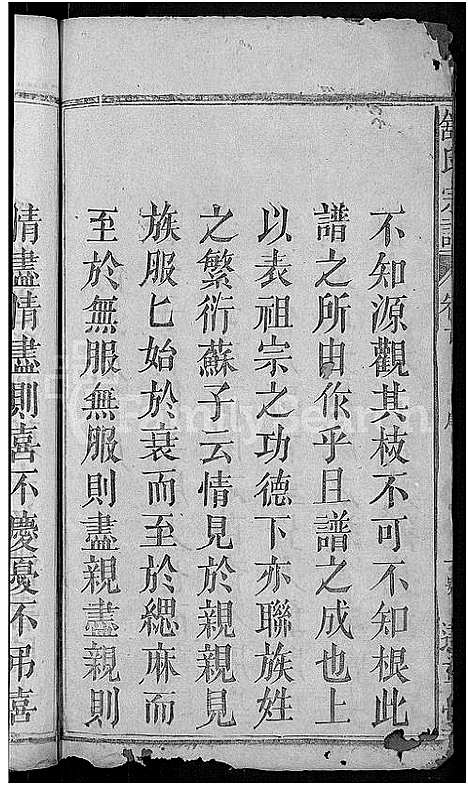 不知源觀其枝不可不知根此
譜之所由作乎且譜之成也上
以表祖宗之功德下亦聯族姓
之繁衍蘇子云情見於親親見
族服匕始於衰而至於緦麻而
至於無服無服則盡親盡親則
情盡情盡則喜不慶憂不弔喜
FamilySearch